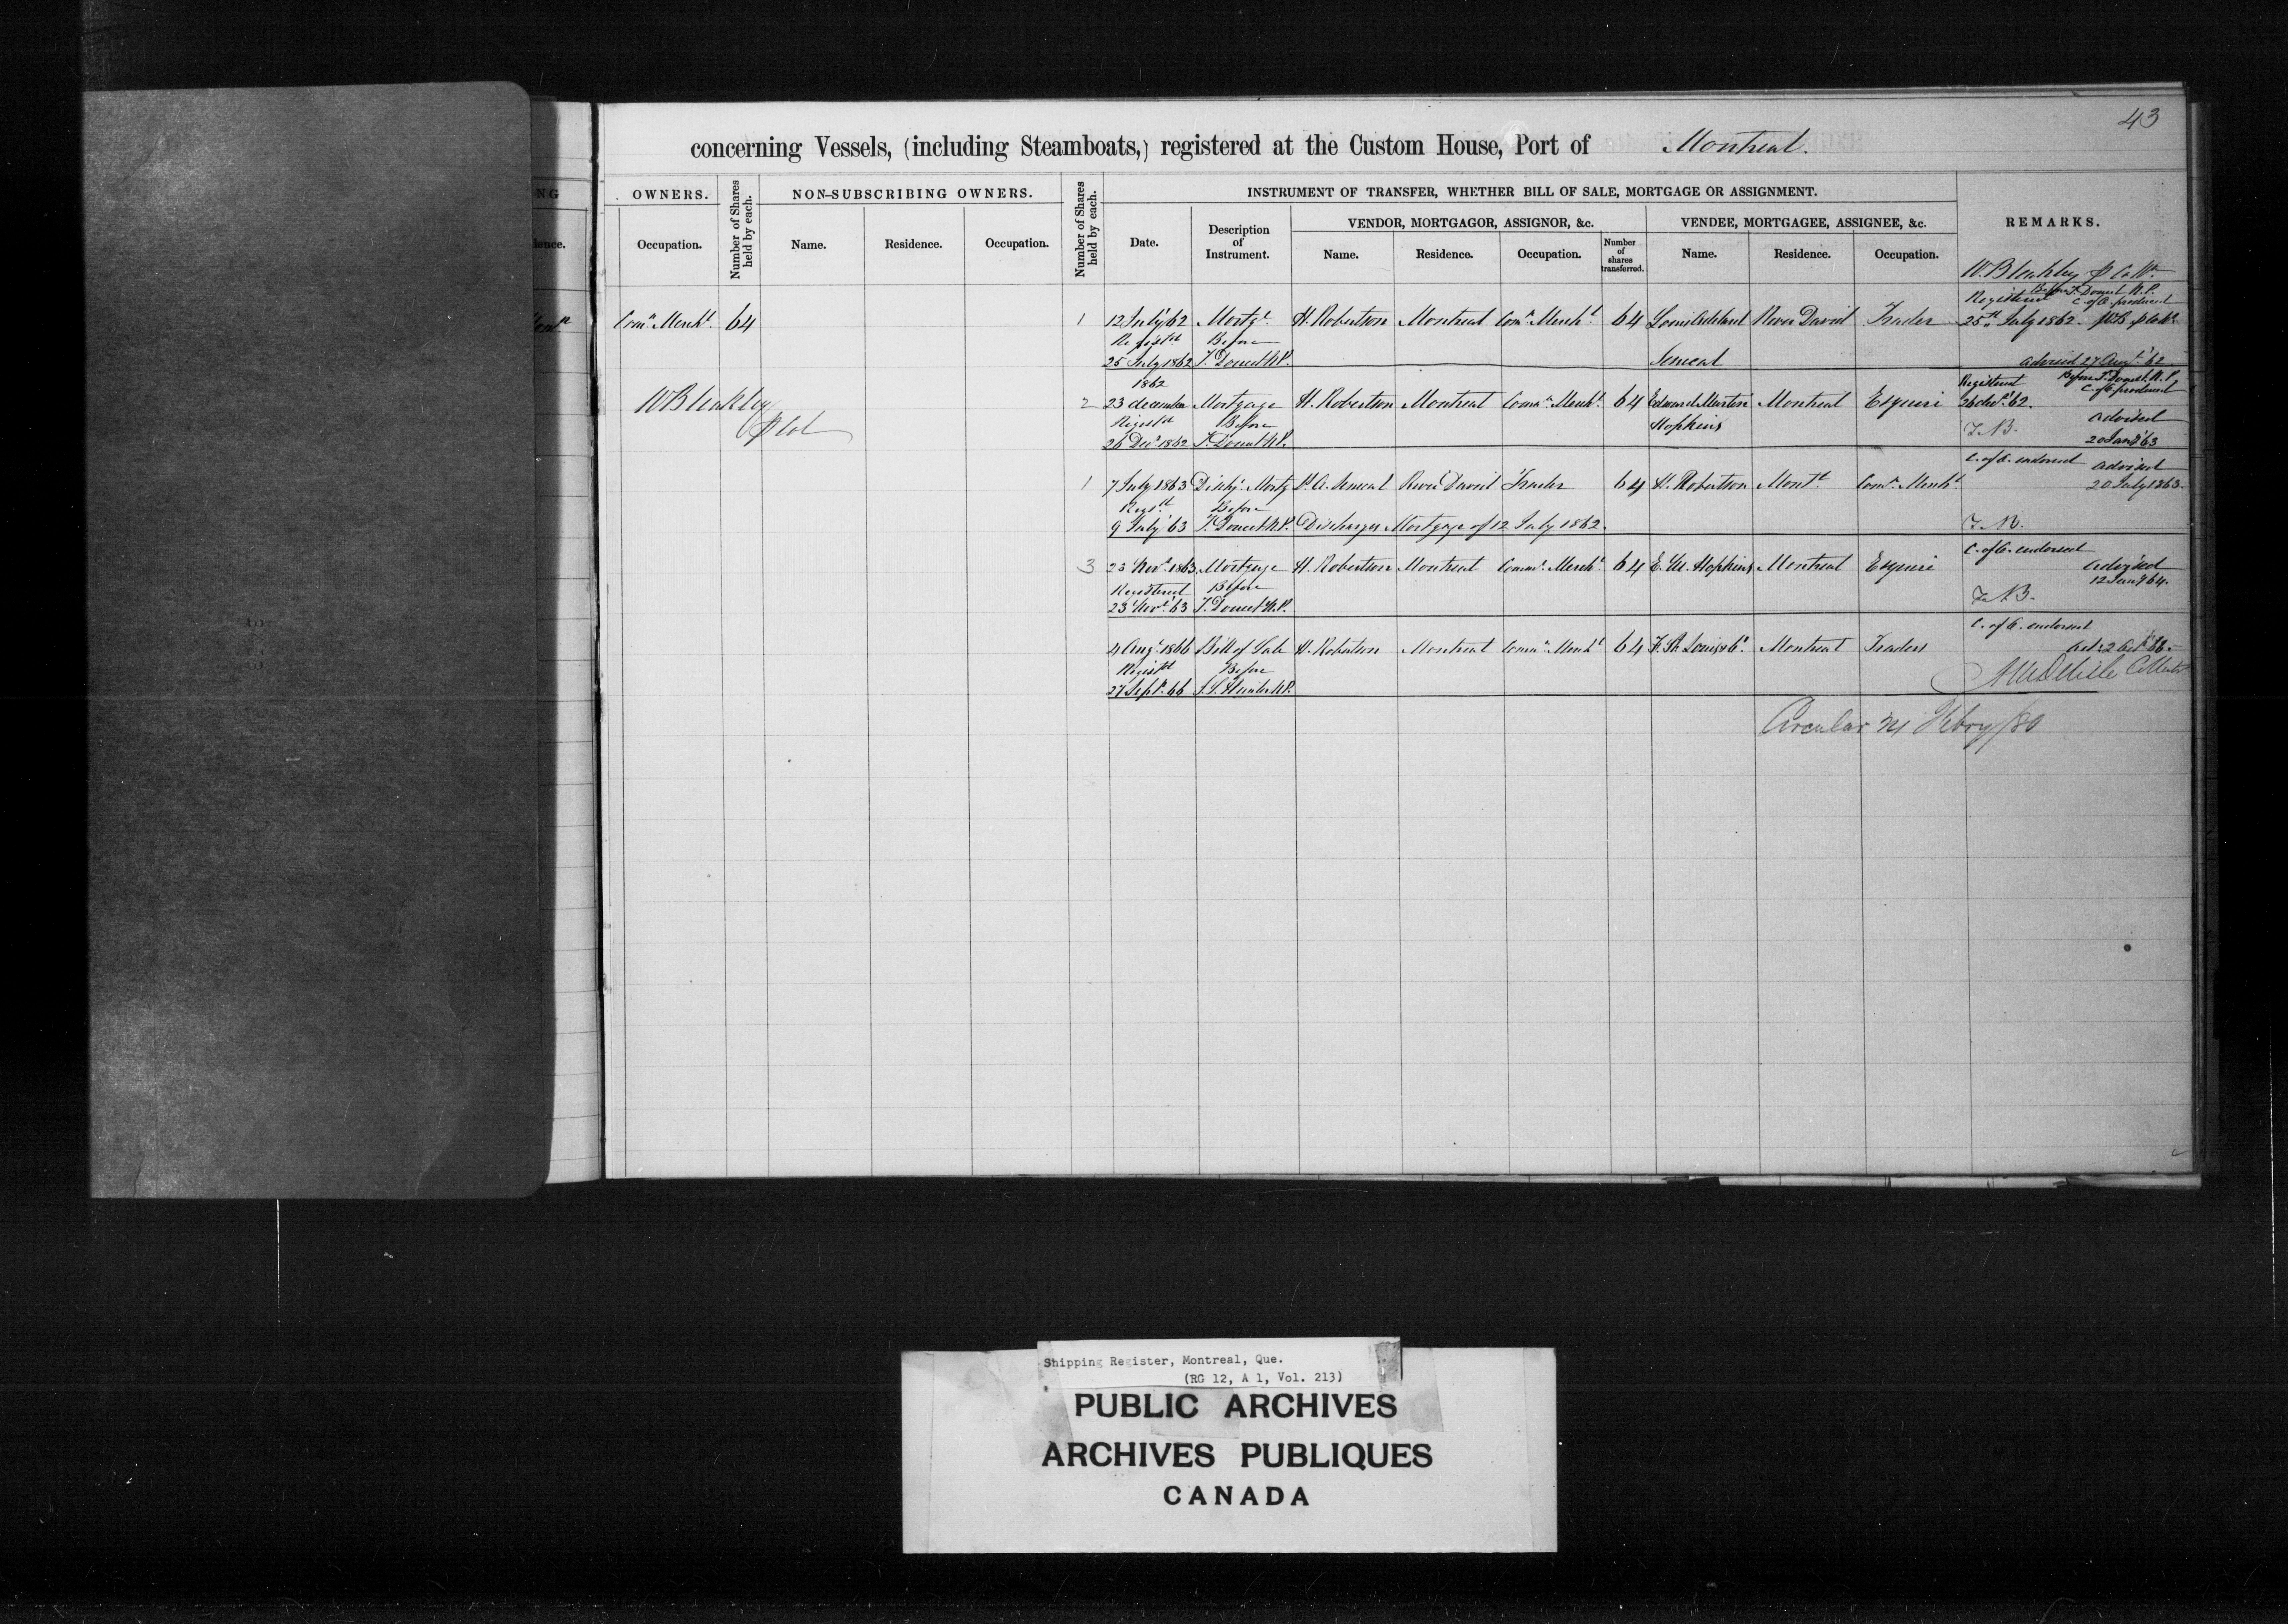 43
concerning Vessels, (including Steamboats,) registered at the Custom House, Port of Montreal.
NG
OWNERS.
Number of Shares held by each.
NON-SUBSCRIBING OWNERS.
Number of Shares held by each.
INSTRUMENT OF TRANSFER, WHETHER BILL OF SALE, MORTGAGE OR ASSIGNMENT.
REMARKS.
VENDOR, MORTGAGOR, ASSIGNOR, &c.
VENDEE, MORTGAGEE, ASSIGNEE, &c.
dence.
Occupation.
Name.
Residence.
Occupation.
Date.
Description of Instrument.
Name.
Residence.
Occupation.
Number of shares transferred.
Name.
Residence.
Occupation.
W Bleakley
Registered Before T. Doucet N.P.
C. of O. produced
Comn Mercht. 64 1 12 July '62 Mortge H. Robertson Montreal Comn Mercht 64 Louis Adelard River David Trader 25th July 1862.
Regist'd Before
25 July 1862 T. Doucet N.P. Senecal advised 27 Augt '62
1862 Registered Before T. Doucet N.P.
C. of O. produced
W Bleakley 2 23 december Mortgage H. Robertson Montreal Comn Mercht 64 Edward Martin Montreal Esquire 26 decr '62.
Regist'd Before Hopkins advised
26 Decr 1862 T. Doucet N.P. 20 Jany '63
C. of O. endorsed advised
1 7 July 1863 Dischg. Mortg L. A. Senecal River David Trader 64 H. Robertson Montl Comn Mercht 20 July 1863.
Regist'd Before
9 July '63 T. Doucet N.P. Discharges Mortgage of 12 July 1862.
C. of O. endorsed
3 23 Novr 1863 Mortgage H. Robertson Montreal Comn Mercht 64 E. M. Hopkins Montreal Esquire advised
12 Jany '64.
Registered Before
23 Novr '63 T. Doucet N.P.
C. of O. endorsed
4 Augt 1866 Bill of Sale H. Robertson Montreal Comn Mercht 64 F. St. Louis & Co. Montreal Traders
Regist'd Before
27 Sept. 66 J. S. Hunter N.P.
Circular 24 Febry/80
Shipping Register, Montreal, Que.
(RG 12, A 1, Vol. 213)
PUBLIC ARCHIVES
ARCHIVES PUBLIQUES
CANADA